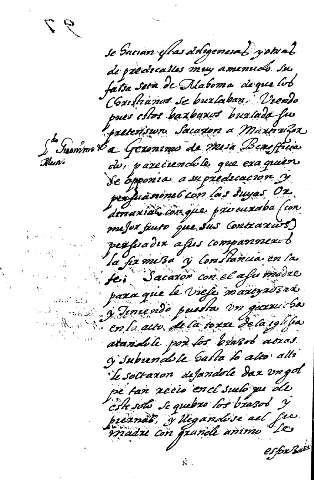 97
se hacian estas diligencias, y otras
de predicalles muy amenudo su
falsa seta de Mahoma de que los
Christianos se burlaban. Viendo
pues estos barbaros burlada su
pretension sacaron a Martirizar
a Geronimo de Mesa Beneficia
do, pareciendole que era quien
se opponia a su predicacion y
persuasiones con las suyas Or
dinarias con que procuraba (con
mejor justo que sus contrarios)
persuadir a sus companneros
la firmeza y constancia en la
fe. Sacaron con el a su madre
para que le viese martyrizar
y haviendo puesto un garrucha
en lo alto de la torre de la iglesia
atandole por los brazos atras
y subiendole hasta lo alto alli
le soltaron dejandole dar un gol
pe tan recio en el suelo que de
este solo se quebro los brazos y
piernas, y llegandose a el su
madre con grande animo le
esforzaba